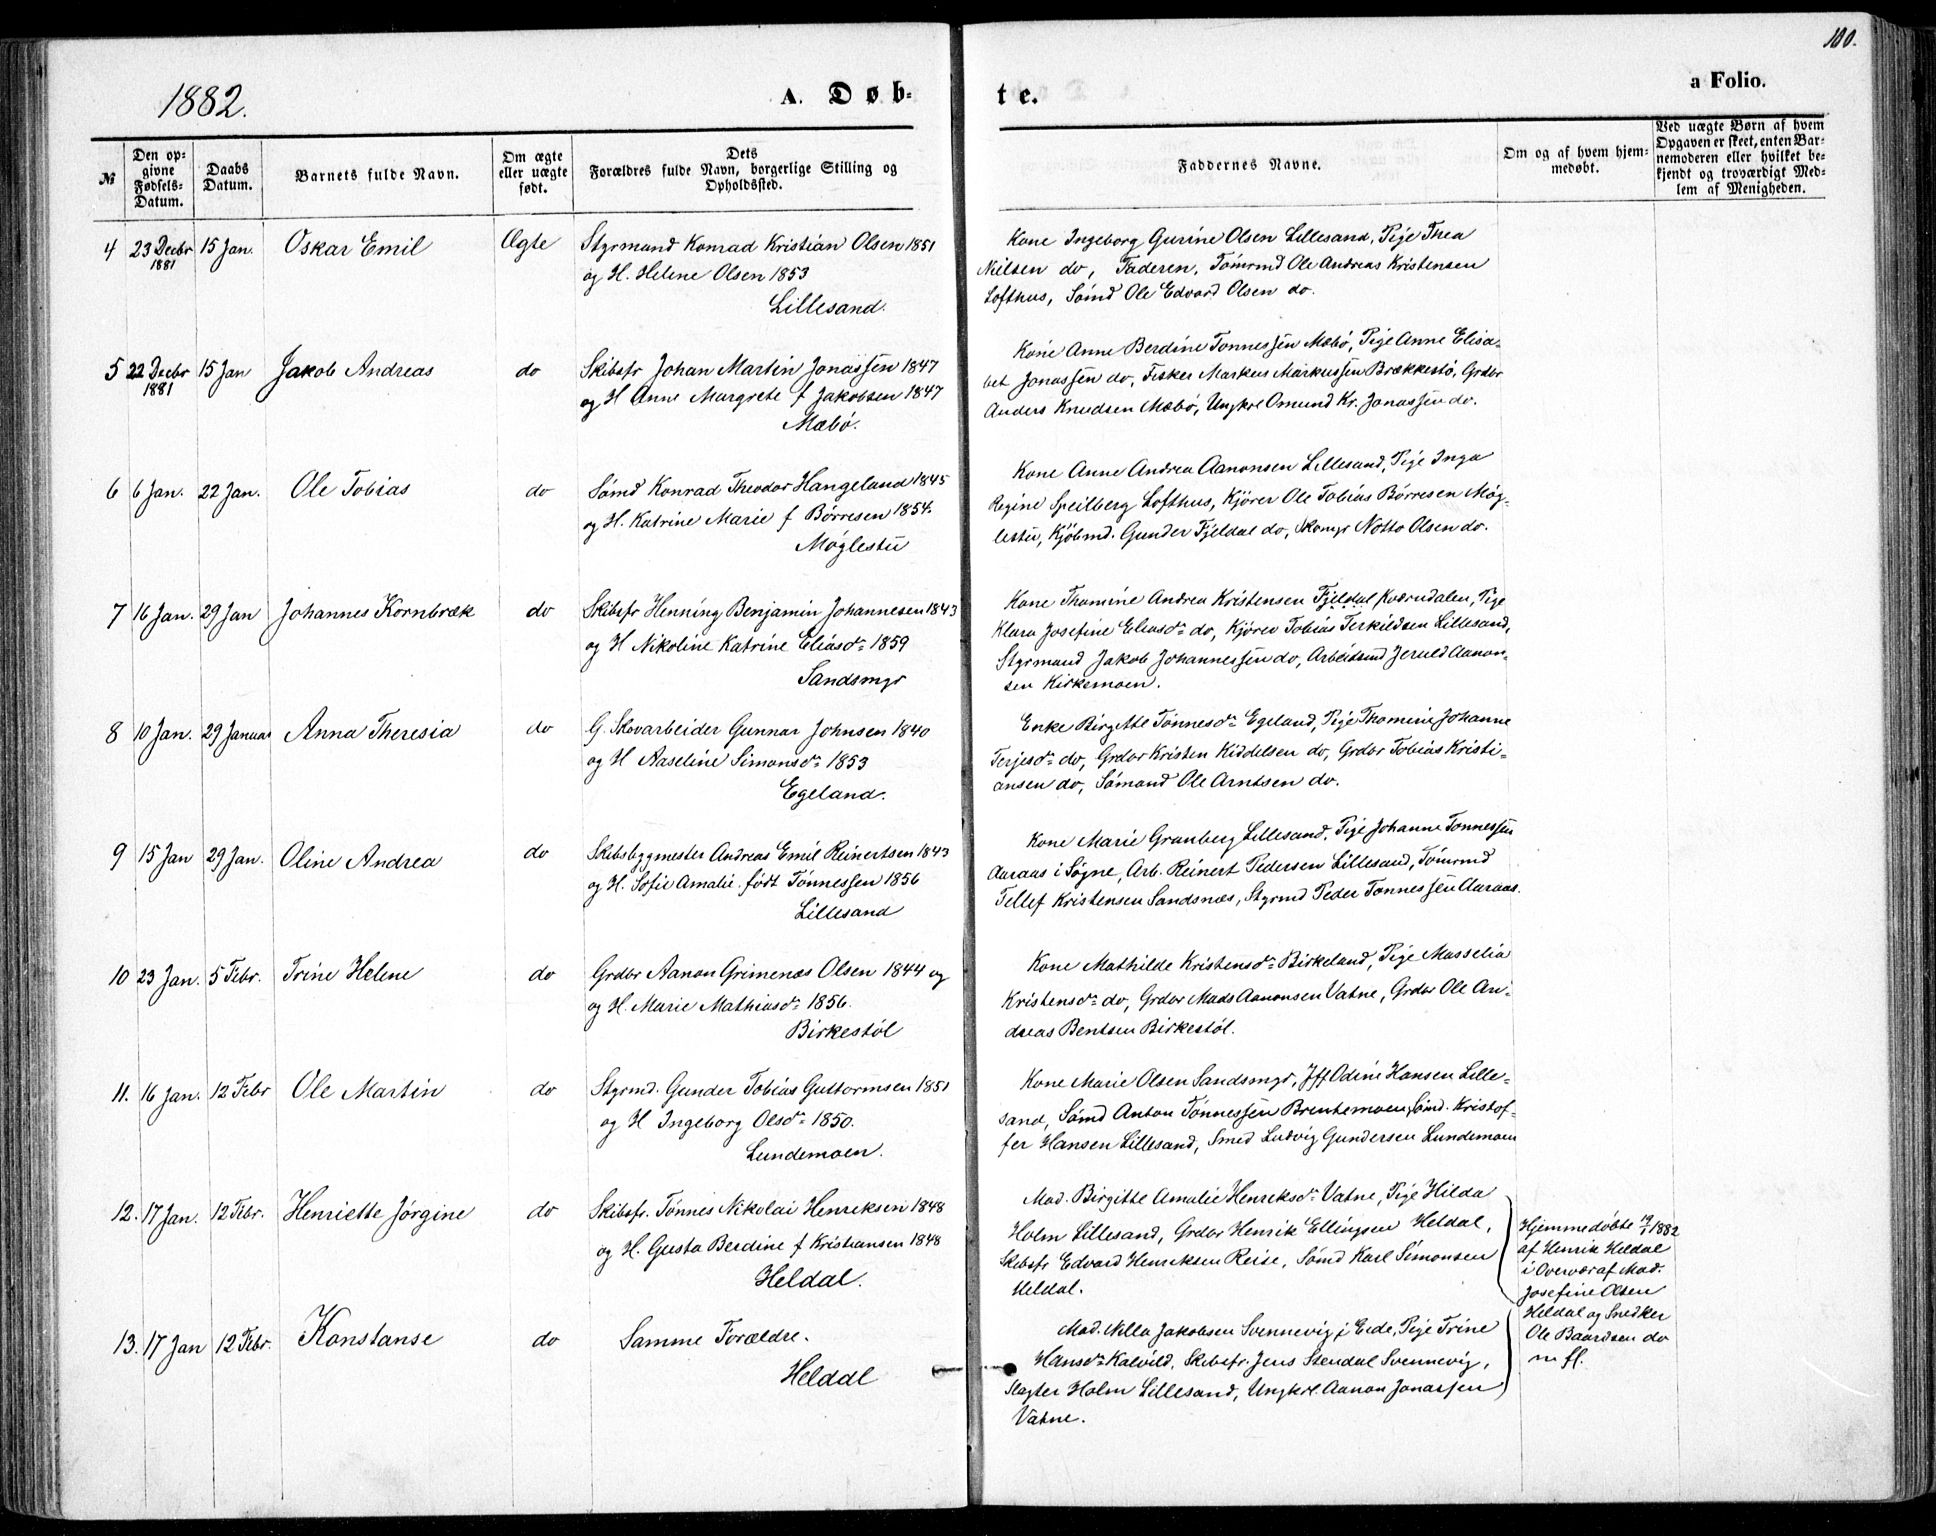 100.
1882.
A. Døb-
te.
a Folio.
№
Den op-
givne
Fødsels-
Datum.
Daabs
Datum.
Barnets fulde Navn.
Om ægte
eller uægte
født.
Dets
Forældres fulde Navn, borgerlige Stilling og
Opholdssted.
Faddernes Navne.
Om og af hvem hjem-
medøbt.
Ved uægte Børn af hvem
Opgaven er skeet, enten Bar-
nemoderen eller hvilket be-
kjendt og troværdigt Med-
lem af Menigheden.
4 23 Decbr 1881 15 Jan. Oskar Emil Ægte
Styrmand Konrad Kristian Olsen 1851
og H. Helene Olsen 1853
Lillesand.
Kone Ingeborg Gurine Olsen Lillesand, Pige Thea
Nielsen do, Faderen, Tömrmd Ole Andreas Kristensen
Lofthus, Sömd Ole Edvard Olsen do.
5 22 Decbr 1881 15 Jan Jakob Andreas do
Skibsfr Johan Martin Jonassen 1847
og H Anne Margrete f Jakobsen 1847
Mæbö.
Kone Anne Berdine Tonnessen Mæbö, Pige Anne Elisa-
bet Jonassen do, Fisker Markus Markussen Brækkestö, Grdbr
Anders Knudsen Mæbö, Ungkrl Omund Kr. Jonassen do.
6 6 Jan. 22 Jan. Ole Tobias do
Sömd Konrad Theodor Hangeland 1845
og H. Katrine Marie f Börresen 1854.
Möglestu
Kone Anne Andrea Aanonsen Lillesand, Pige Inga
Regine Speilberg Lofthus, Kjörer Ole Tobias Börresen Mög-
lestu, Kjöbmd. Gunder Fjeldal do, Skomgr Notto Olsen do.
7 16 Jan. 29 Jan Johannes Kornbræk do
Skibsfr Henning Benjamin Johannesen 1843
og H Nikoline Katrine Eliasdr 1859
Sandsmyr
Kone Thomine Andrea Kristensen Fjeldal Kværndalen, Pige
Klara Josefine Eliasdr do, Kjörer Tobias Terkildsen Lillesand,
Styrmand Jakob Johannessen do, Arbeidsmd Jeruld Aanon-
sen Kirkemoen.
8 10 Jan. 29 Januar Anna Theresia do
G. Skovarbeider Gunnar Johnsen 1840
og H Aaseline Simonsdr 1853
Egeland.
Enke Birgitte Tönnesdr Egeland, Pige Thomine Johanne
Terjesdr do, Grdbr Kristen Kiddelsen do, Grdbr Tobias Kristi-
ansen do, Sömand Ole Arntsen do.
9 15 Jan 29 Jan. Oline Andrea do
Skibsbygmester Andreas Emil Reinertsen 1843
og H. Sofie Amalie født Tönnessen 1856
Lillesand
Kone Marie Granberg Lillesand, Pige Johanne Tonnessen
Aaraas i Sögne, Arb. Reinert Pedersen Lillesand, Tömrmd
Tellef Kristensen Sandsnæs, Styrmd Peder Tonnessen Aaraas.
10 23 Jan. 5 Febr. Trine Helene do
Grdbr Aanon Grimenæs Olsen 1844 og
og H. Marie Mathiasdr 1856.
Birkestöl
Kone Mathilde Kristensdr Birkeland, Pige Masselia
Kristensdr do, Grdbr Mads Aanonsen Vatne, Grdbr Ole An-
dreas Bentsen Birkestöl.
11. 16 Jan. 12 Febr Ole Martin do
Styrmd. Gunder Tobias Guttormsen 1851
og H Ingeborg Olsdr 1850.
Lundemoen.
Kone Marie Olsen Sandsmyr, Jfr Odine Hansen Lille-
sand, Sömd Anton Tönnessen Brentemoen, Sömd. Kristof-
fer Hansen Lillesand, Smed Ludvig Gundersen Lundemoen
12. 17 Jan. 12 Febr. Henriette Jørgine do
Skibsfr. Tönnes Nikolai Henriksen 1848
og H. Gusta Berdine f Kristiansen 1848
Heldal.
Mad. Birgitte Amalie Henriksdr Vatne, Pige Hilda
Holm Lillesand, Grdbr Henrik Ellingsen Heldal,
Skibsfr Edvard Henriksen Reise, Sömd Karl Simonsen
Heldal.
Hjemmedöbte 19/1 1882
af Henrik Heldal
i Overvær af Mad.
Josefine Olsen
Heldal og Snedker
Ole Baardsen do
m fl.
13. 17 Jan 12 Febr. Konstanse do
Samme Forældre.
Heldal
Mad. Nilla Jakobsen Svennevig i Eide, Pige Trine
Hansdr Kalvild, Skibsfr. Jens Stendal Svennevig,
Slagter Holm Lillesand, Ungkrl. Aanon Jonassen
Vatne.